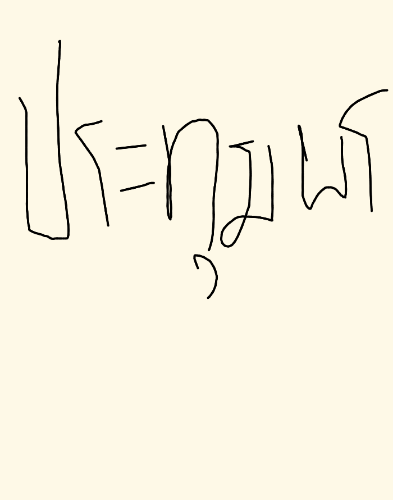 ประทุมพร